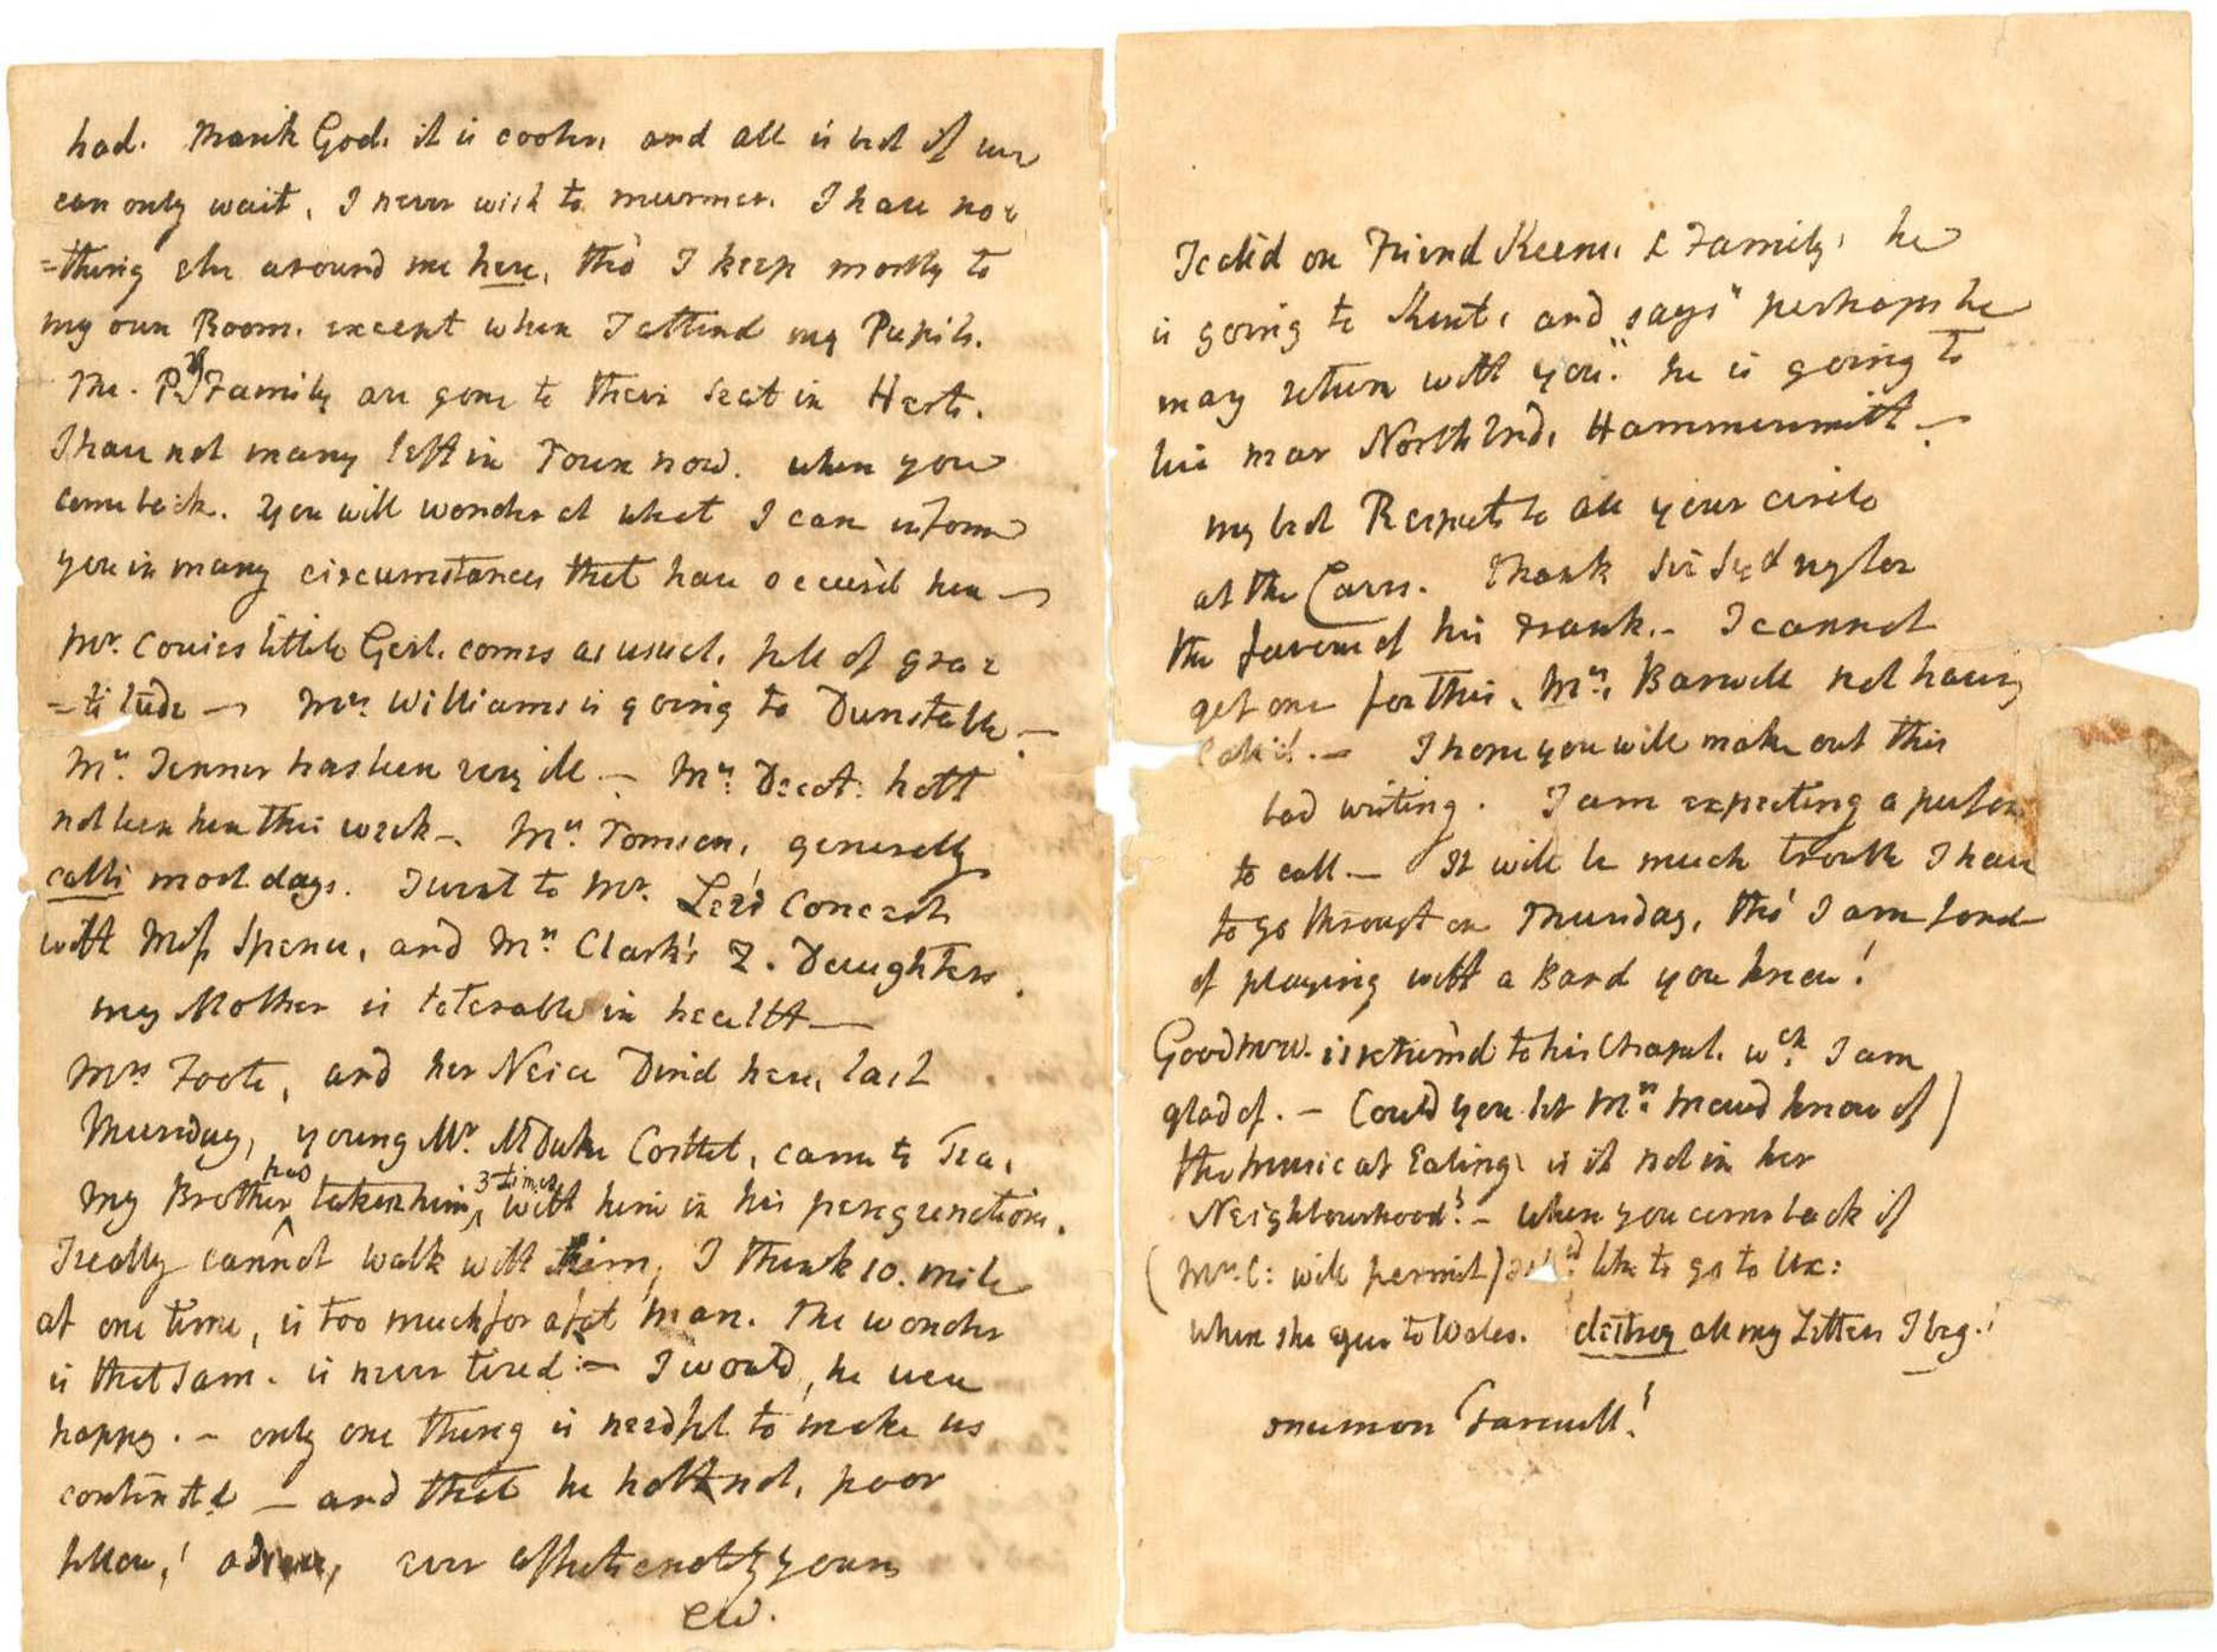 had. Thank God, it is cooler, and all is best if we
can only wait, I never wish to murmer. I have no=
=thing else around me here, tho' I keep mostly to
my own Room. except when I attend my Pupils.
The Family are gone to their seat in Herts.
I have not many left in Town now. when you
come back. you will wonder at what I can inform
you in many circumstances that have occur'd here —
Mr. Cories little Girl. comes as usual, full of gra=
=titude — Mrs. Williams is going to Dunstable —
Mrs. Jenner has been very ill — Mrs. hath
not been here this week —. Mrs. Tomson, generally
calls most days. I went to Mr. Lee's Concert
with Miss Spence, and Mrs. Clark's 2. Daughters.
my Mother is tolerable in health —
Mrs Foote, and her Neice Din'd here, last
Thursday, young Mr. came to Tea,
My Brother has taken him 3 times with him in his peregrenations.
I really cannot walk with him, I think 10. mile
at one time, is too much for a fat man. The wonder
is that Sam. is never tired :— I would, he were
happy. — only one thing is needful to make us
contented — and that he hath not, poor
fellow,! adieu, ever affectionately yours
CW.
I call'd on Friend Keene, & Family, he
is going to Kent, and says "perhaps he
may return with you." he is going to
live near North End, Hammersmith —
my best Respects to all your circle
at the Carrs. Thank Sir for
the favour of his Frank.— I cannot
get one for this, Mrs. Barwell not having
call'd. — I hope you will make out this
bad writing. I am expecting a person
to call — It will be much trouble I have
to go through on Thursday, tho' I am fond
of playing with a Band you know!
Good is return'd to his Chapel. wch. I am
glad of. — Could you let Mrs. Maud know of
the music at Ealing, is it not in her
Neighbourhood? — when you come back if
(Mrs. C: will permit) like to go to Ux:
when she goes to Wales. destroy all my Letters I beg.!
Farewell!